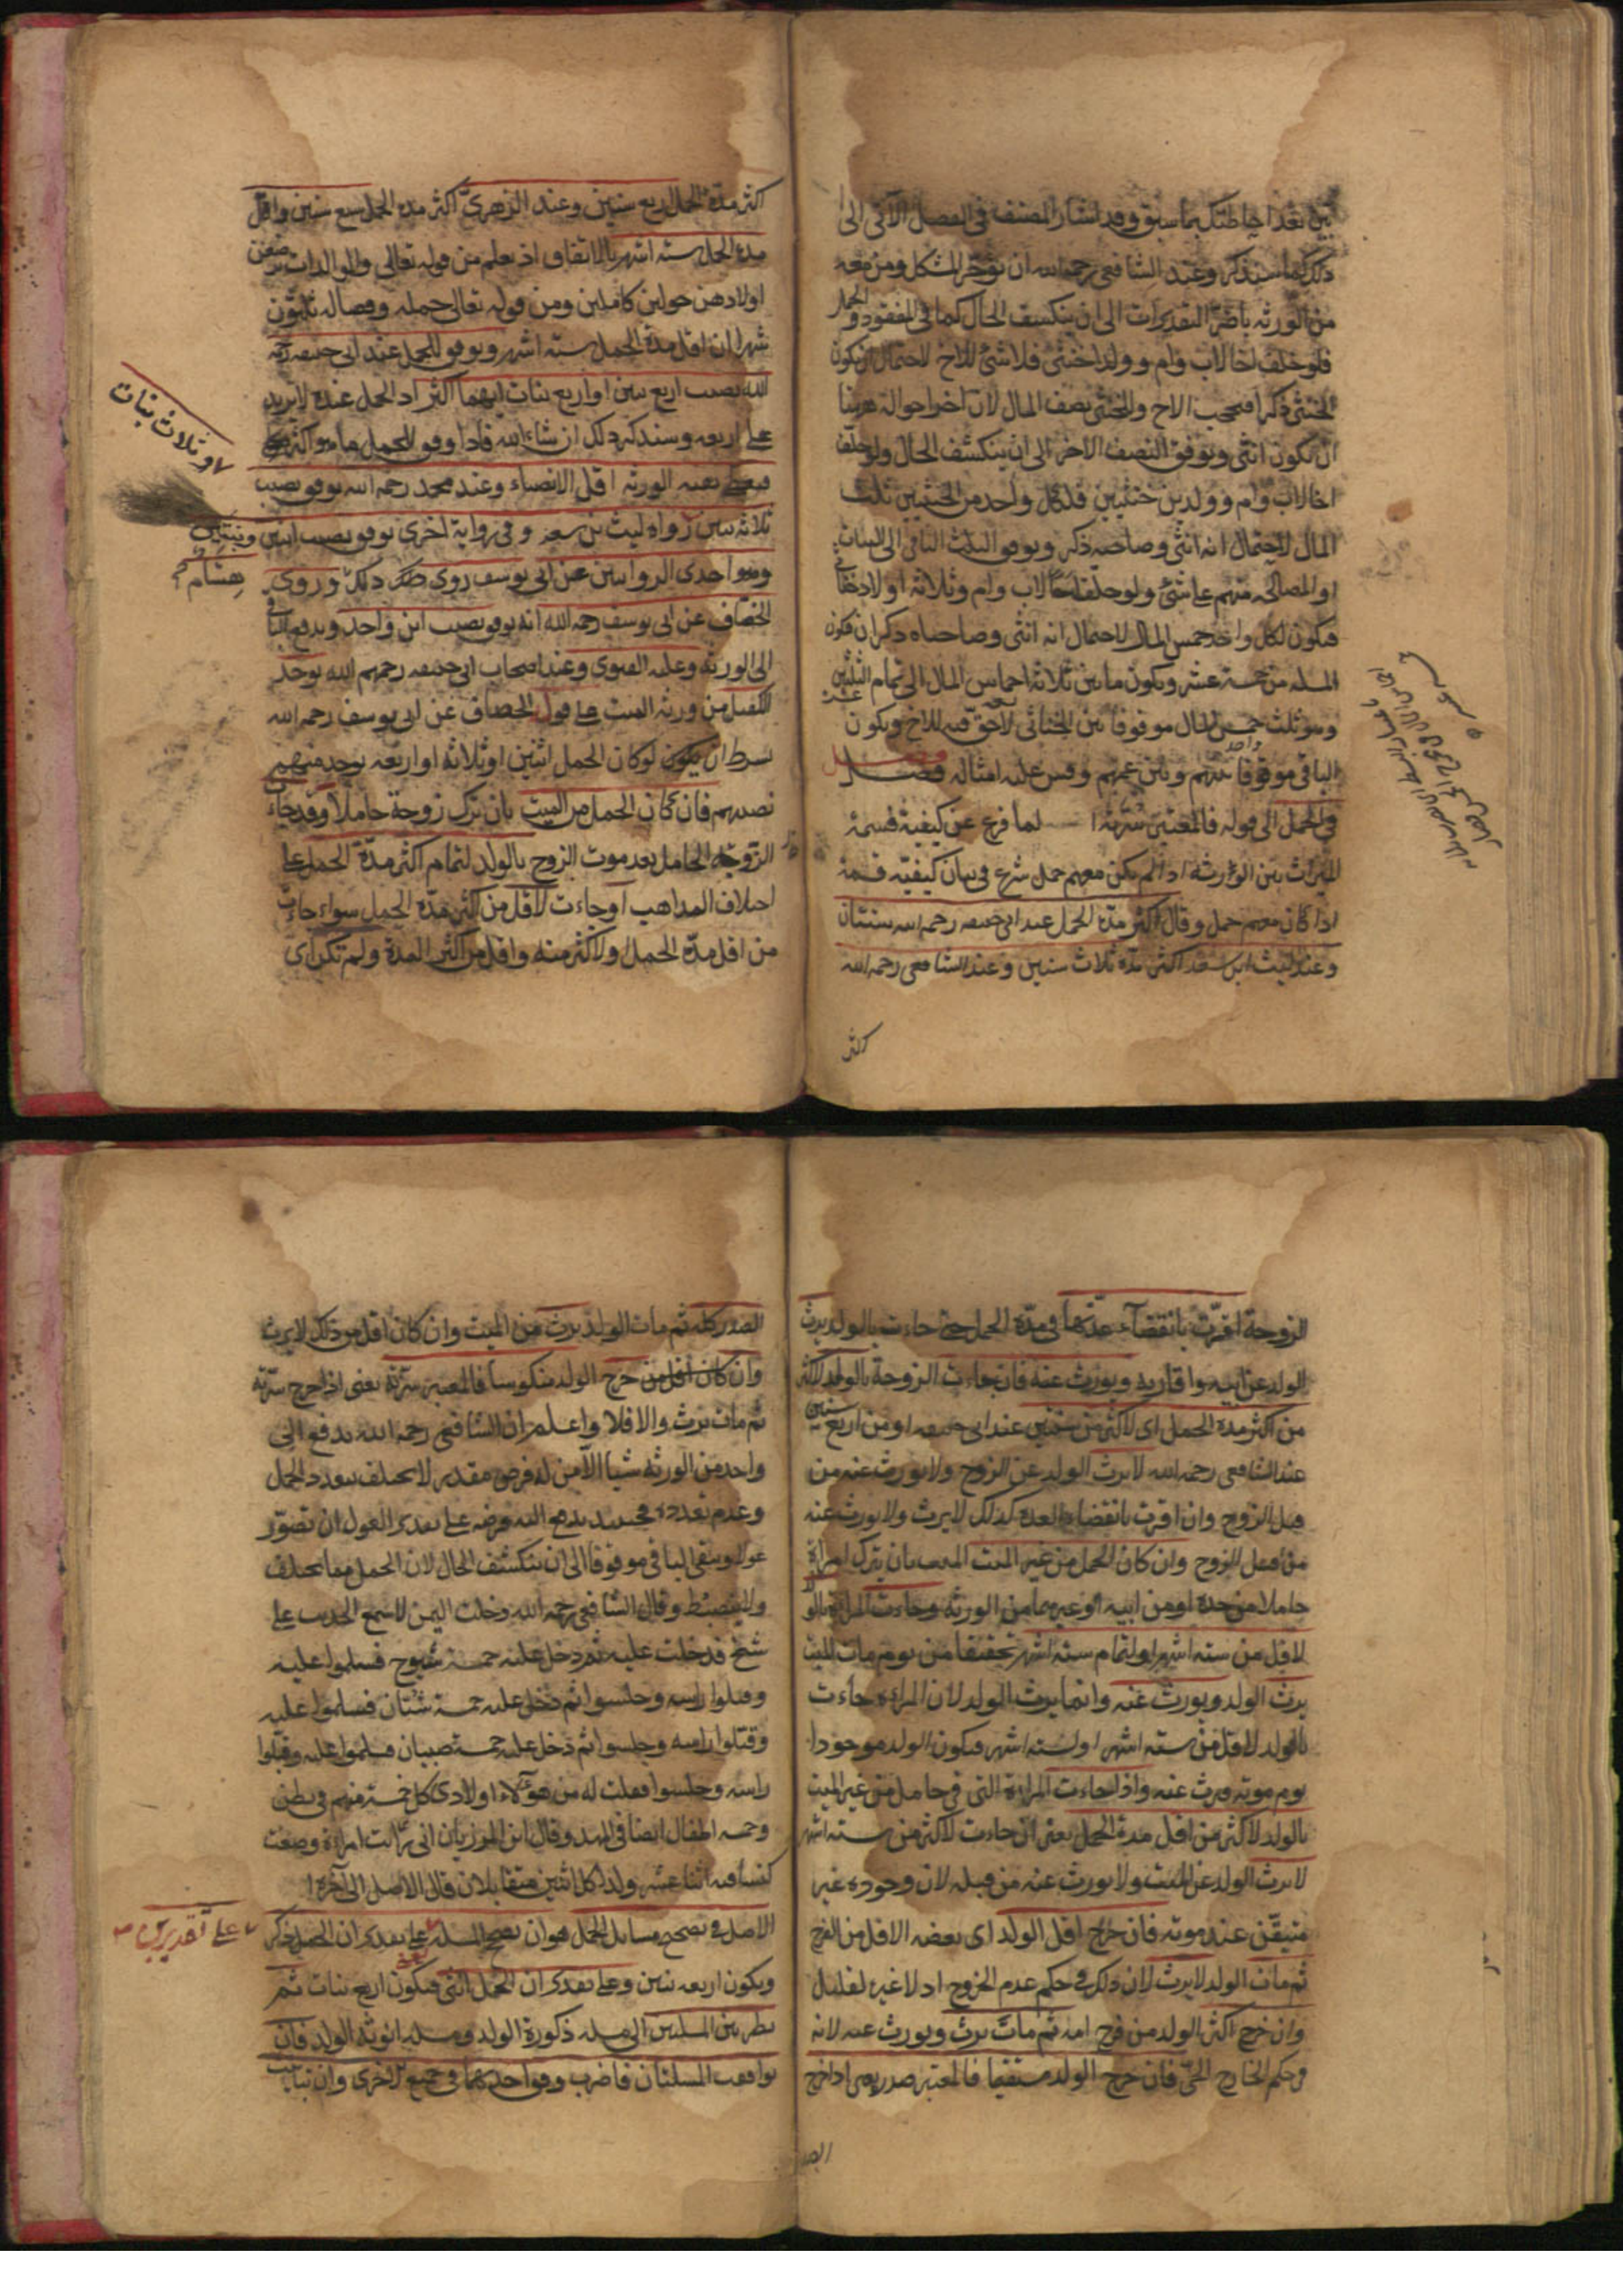 تبين بعد احاطتك بما سبق وقد اشار المصنف في الفصل الآتي الى
ذلك كما سنذكر وعند الشافعي رحمه الله ان يؤخر المشكل ومن معه
من الورثة باضر التقديرات الى ان ينكشف الحال كما في المفقود والحمل
فلو خلف اخا لاب وام وولدا خنثى فلا شئ للاخ لاحتمال ان يكون
الخنثى ذكرا فيحجب الاخ وللخنثى نصف المال لان اخر احواله هنا
ان يكون انثى ويوقف النصف الاخر الى ان ينكشف الحال ولو خلف
اخا لاب وام وولدين خنثيين فلكل واحد من الخنثيين ثلث
المال لاحتمال انه انثى وصاحبه ذكر ويوقف الثلث الباقي الى البيان
او المصالحة منهم على شئ ولو خلف اخا لاب وام وثلاثة اولاد خناثى
فيكون لكل واحد خمس المال لاحتمال انه انثى وصاحباه ذكران فيكون
المسئلة من خمسة عشر ويكون ما بين ثلاثة اخماس المال الى تمام الثلثين
وهو ثلث خمس المال موقوفا بين الخناثى لا حق فيه للاخ ويكون
الباقي موقوفا بينهم وبين عمهم وقس عليه امثاله فصل
في الحمل الى قوله فالمعتبر سرته لما فرغ عن كيفية قسمة
الميراث بين الورثة اذا لم يكن معهم حمل شرع في بيان كيفية قسمة
اذا كان معهم حمل وقال اكثر مدة الحمل عند ابي حنيفة رحمه الله سنتان
وعند ليث ابن سعد اكثر مدة ثلاث سنين وعند الشافعي رحمه الله
اكثر
اكثر مدة الحمل اربع سنين وعند الزهري اكثر مدة الحمل سبع سنين واقل
مدة الحمل ستة اشهر بالاتفاق اذ يعلم من قوله تعالى والوالدات يرضعن
اولادهن حولين كاملين ومن قوله تعالى حمله وفصاله ثلثون
شهرا ان اقل مدة الحمل ستة اشهر ويوقف للحمل عند ابي حنيفة رحمه
الله نصيب اربع بنين او اربع بنات ايهما اكثر اذ الحمل عنده لا يزيد
على اربعة وسنذكر ذلك ان شاء الله فاذا وقف للحمل ما هو اكثر
فيعطى بقية الورثة اقل الانصباء وعند محمد رحمه الله يوقف نصيب
او ثلاث بنات
ثلاثة بنين رواه ليث بن سعد وفي رواية اخرى يوقف نصيب ابنين وبنتين
وهو احدى الروايتين عن ابي يوسف روى ذلك وروى
هشام
الخصاف عن ابي يوسف رحمه الله انه يوقف نصيب ابن واحد ويدفع الباقي
الى الورثة وعليه الفتوى وعند اصحاب ابي حنيفة رحمهم الله يوخذ
الكفيل من ورثة الميت على قول الخصاف عن ابي يوسف رحمه الله
بشرط ان يكون لو كان الحمل اثنين او ثلاثة او اربعة يوخذ منهم
نصيبهم فان كان الحمل من الميت بان ترك زوجة حاملا وقد جاءت
الزوجة الحامل بعد موت الزوج بالولد لتمام اكثر مدة الحمل على
اختلاف المذاهب او جاءت لاقل من اكثر مدة الحمل سواء جاءت
من اقل مدة الحمل او لاكثر منه واقل من اكثر المدة ولم تكن اى
الزوجة اقرت بانقضاء عدتها في مدة الحمل حتى جاءت بالولد يرث
الولد عن ابيه واقاربه ويورث عنه فان جاءت الزوجة بالولد لاكثر
من اكثر مدة الحمل اى لاكثر من سنتين عند ابي حنيفة او من اربع سنين
عند الشافعي رحمه الله لا يرث الولد عن الزوج ولا يورث عنه من
قبل الزوج وان اقرت بانقضاء العدة كذلك لا يرث ولا يورث عنه
من قبل الزوج وان كان الحمل من غير الميت بان يترك امرأة
حاملا من جده او من ابيه او غيرهما من الورثة وجاءت المرأة بالولد
لاقل من ستة اشهر او لتمام ستة اشهر تحقيقا من يوم مات الميت
يرث الولد ويورث عنه وانما يرث الولد لان المرأة جاءت
بالولد لاقل من ستة اشهر او لستة اشهر فيكون الولد موجودا
يوم موته فيرث عنه واذا جاءت المرأة التي هي حامل من غير الميت
بالولد لاكثر من اقل مدة الحمل يعني ان جاءت لاكثر من ستة اشهر
لا يرث الولد عن الميت ولا يورث عنه من قبله لان وجوده غير
متيقن عند موته فان خرج اقل الولد اى بعضه الاقل من الفرج
ثم مات الولد لا يرث لان ذلك في حكم عدم الخروج اذ لا عبرة لقليل
وان خرج اكثر الولد من فرج امه ثم مات يرث ويورث عنه لانه
في حكم الخارج الحي فان خرج الولد مستقيما فالمعتبر صدره يعني اذا خرج
الصدر
الصدر كله ثم مات الولد يرث من الميت وان كان اقل من ذلك لا يرث
وان كان اقل من خرج الولد منكوسا فالمعتبر سرته يعني اذا خرج سرته
ثم مات يرث والا فلا واعلم ان الشافعي رحمه الله يدفع الى
واحد من الورثة شيئا الا من له فرض مقدر لا يختلف بتعدد الحمل
وعدم تعدده فحينئذ يدفع اليه فرضه على تقدير العول ان تصور
عول ويبقى الباقي موقوفا الى ان ينكشف الحال لان الحمل مما يختلف
ولا ينضبط وقال الشافعي رحمه الله دخلت اليمن لاسمع الحديث على
شيخ فدخلت عليه ثم دخل عليه خمسة شيوخ فسلموا عليه
وقبلوا راسه وجلسوا ثم دخل عليه خمسة شبان فسلموا عليه
وقبلوا راسه وجلسوا ثم دخل عليه خمسة صبيان فسلموا عليه وقبلوا
راسه وجلسوا فقلت له من هؤلاء اولادى كل خمسة منهم في بطن
وخمسة اطفال ايضا في المهد وقال ابن المرزبان انى رأيت امرأة وضعت
كيسا فيه اثنا عشر ولدا كل اثنين متقابلان قال الاصل الى آخره
الاصل في تصحيح مسائل الحمل هو ان تصحح المسئلة على تقدير ان الحمل ذكر
على تقديرين
ويكون اربعة بنين وعلى تقدير ان الحمل انثى فيكون اربع بنات ثم
ينظر بين المسئلتين اى مسئلة ذكورة الولد ومسئلة انوثة الولد فان
توافقت المسئلتان فاضرب وفق احدهما في جميع الاخرى وان تباينت